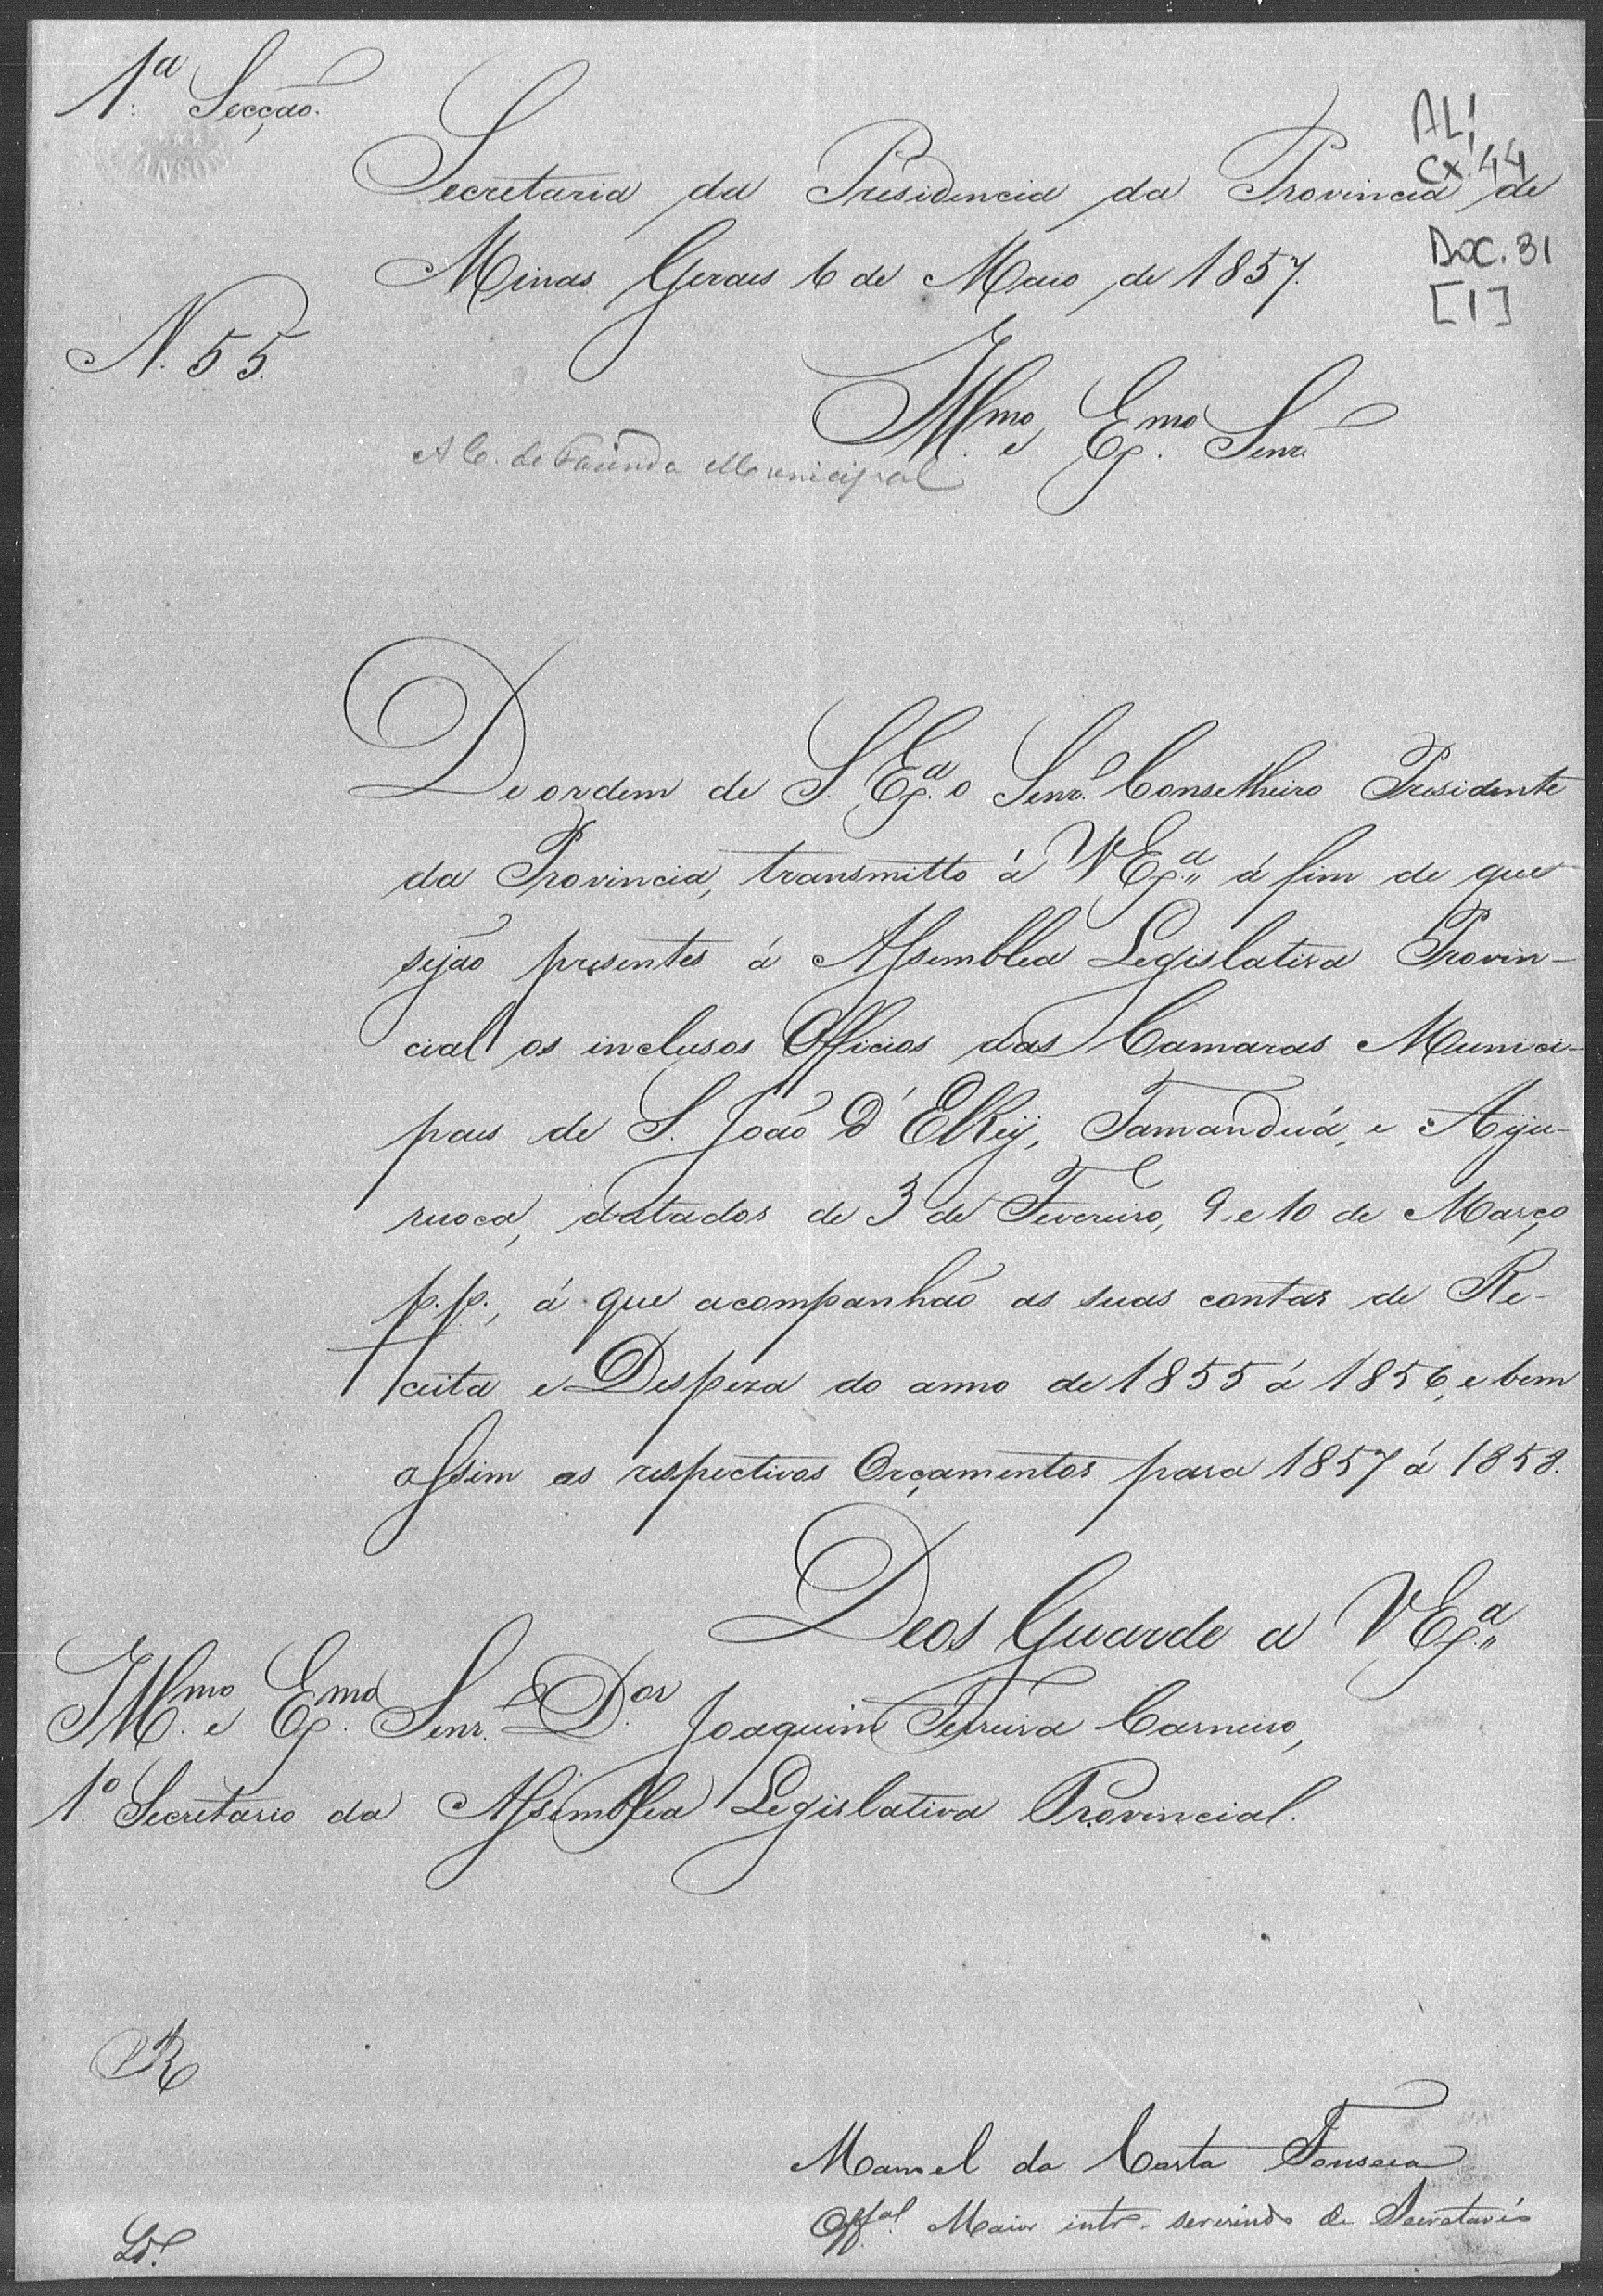 1.ª Secção.
AL1
Cx. 44
Secretaria da Presidencia da Provincia de
Minas Geraes 6 de Maio de 1857.
DOC. 31
[1]
N. 55.
Illmo. e Exmo. Senr.
A C. de Fazenda Municipal
De ordem de S. Exª. o Senr. Conselheiro Presidente
da Provincia, transmitto á V Exª. á fim de que
sejão presentes á Assemblea Legislativa Provin-
cial os inclusos Officios das Camaras Munici-
paes de S. João D' ElRey, Tamanduá, e Ayu-
ruoca, datados de 3 de Fevereiro, 9 e 10 de Março
p.p., á que acompanhão as suas contas de Re-
ceita e Despeza do anno de 1855 á 1856, e bem
assim os respectivos Orçamentos para 1857 á 1858.
Deos Guarde a V Exª.
Illmo. e Exmo. Senr. Dor. Joaquim Ferreira Carneiro,
1.º Secretario da Assemblea Legislativa Provincial.
Manoel da Costa Fonseca
Offal. Maior intº. servindo de Secretario